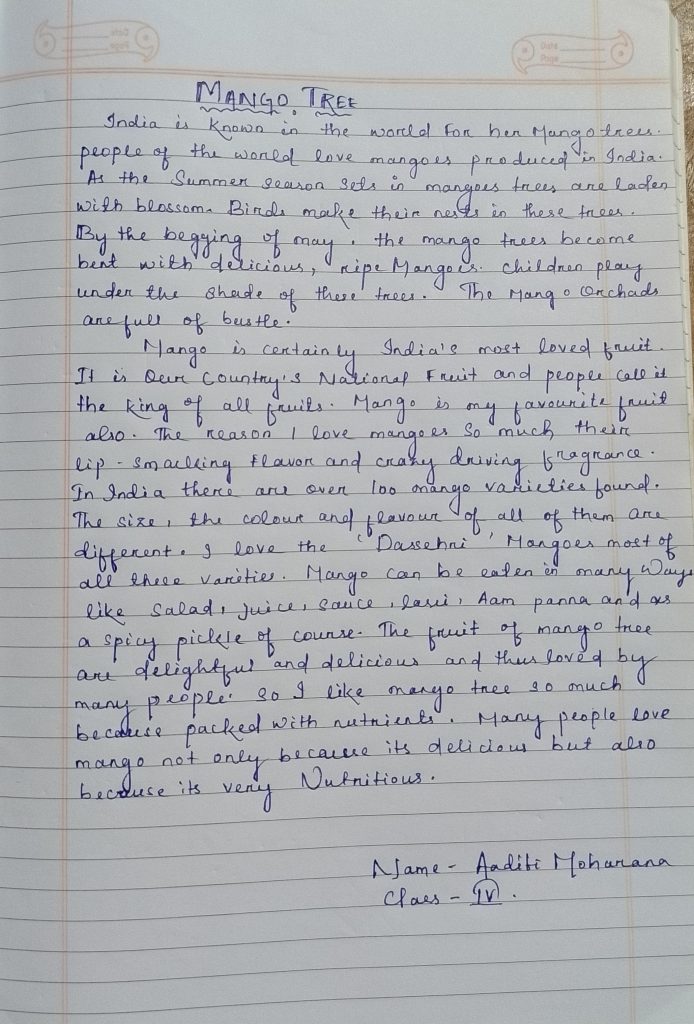 Date
Page
MANGO TREE
India is known in the world for her Mango trees.
people of the world love mangoes produced in India.
As the Summer season sets in mangoes trees are laden
with blossom. Birds make their nests in these trees.
By the begging of may. the mango trees become
bent with delicious, ripe Mangoes. children play
under the shade of these trees. The Mango Orchads
are full of bustle.
Mango is certainly India's most loved fruit.
It is Our Country's National Fruit and people call it
the king of all fruits. Mango is my favourite fruit
also. The reason I love mangoes so much their
lip-smacking flavor and crazy driving fragrance.
In India there are over 100 mango varieties found.
The size, the colour and flavour of all of them are
different. I love the 'Dassehri' Mangoes most of
all these varities. Mango can be eaten in many Ways
like Salad, juice, sauce, lassi, Aam panna and as
a spicy pickle of course. The fruit of mango tree
are delightful and delicious and thus loved by
many people. So I like mango tree so much
because packed with nutrients. Many people love
mango not only because its delicious but also
because its very Nutritious.
Name - Aaditi Moharana
Class - IV.